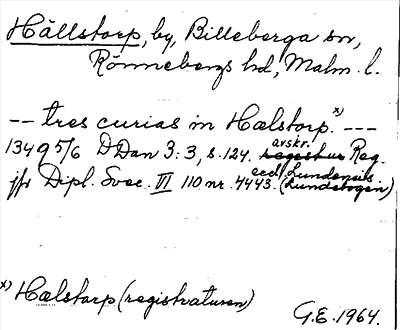 Hällstorp, by, Billeberga sn,
Rönnebergs hd, Malm. l.
-- tres curias in Hælstorp. x) ---
1349 5/6 D Dan 3:3, s. 124. avskr. Reg.
eccl. Lundensis.
jfr Dipl. Svec. VI 110 nr. 4443. (Lundebogen)
x) Hælstarp (registraturen)
G.E. 1964.